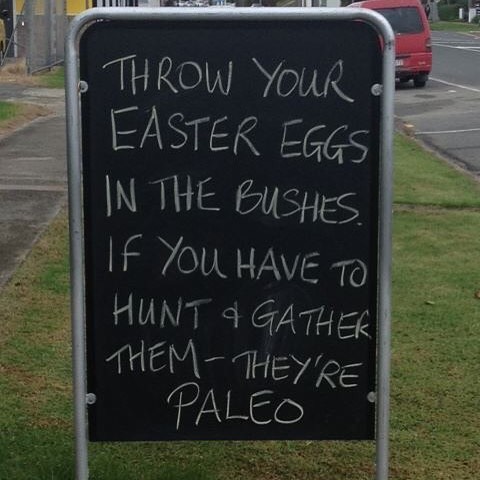 THROW YOUR
EASTER EGGS
IN THE BUSHES.
IF YOU HAVE TO
HUNT & GATHER
THEM - THEY'RE
PALEO